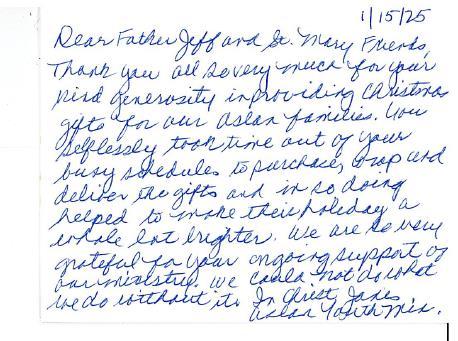 1/15/25
Dear Father Jeff and St. Mary Friends,
Thank you all so very much for your
kind generosity in providing Christmas
gifts for our Aslan families. You
selflessly took time out of your
busy schedules to purchase, wrap and
deliver the gifts and in so doing
helped to make their holiday a
whole lot brighter. We are so very
grateful for your ongoing support of
our ministry. We could not do what
we do without it. In Christ,
Aslan Youth Min.